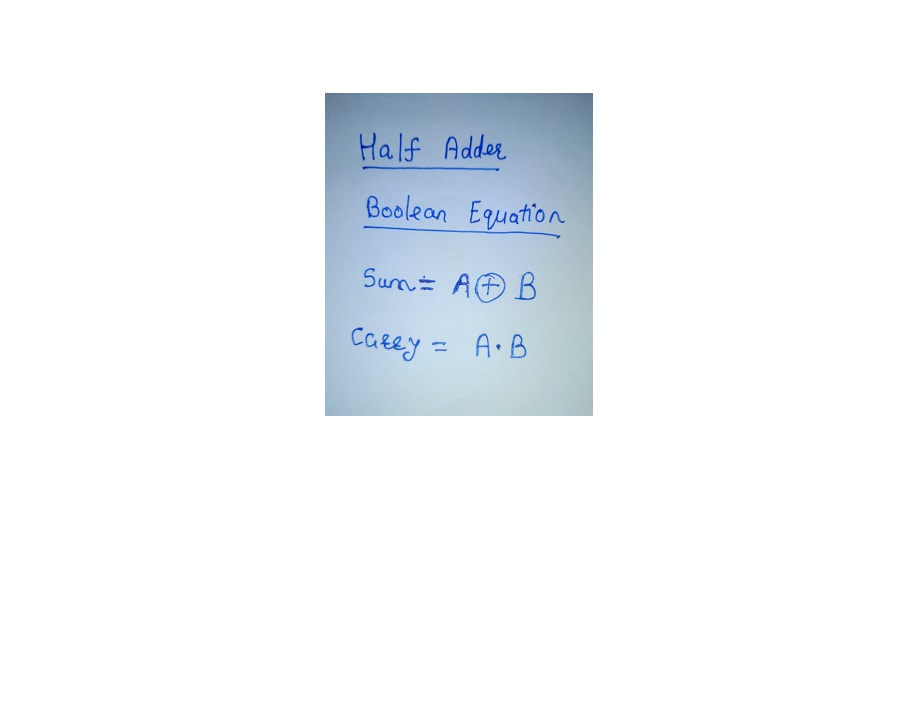 Half Adder
Boolean Equation
Sum = A ⊕ B
Carry = A · B